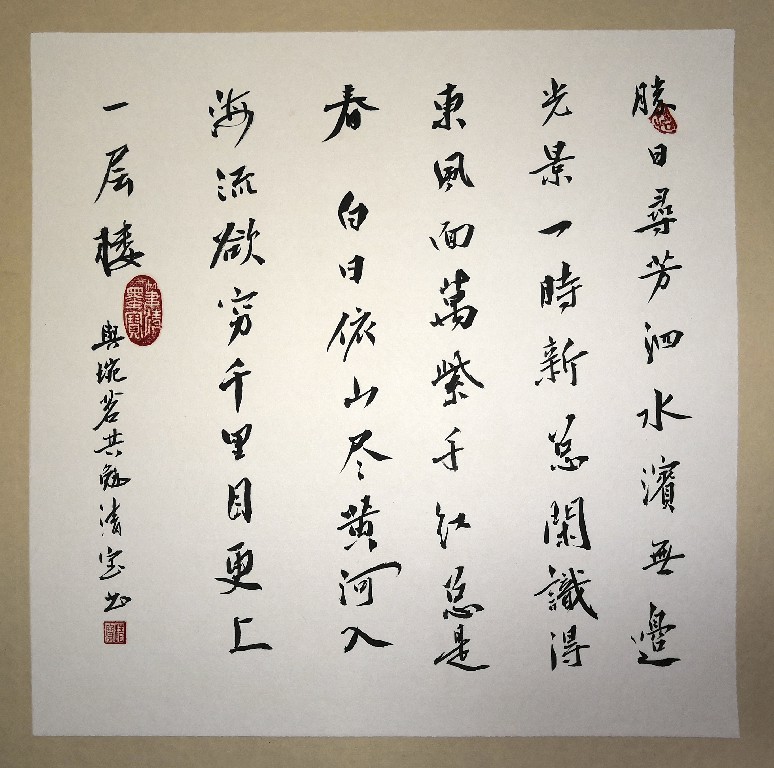 勝日尋芳泗水濱無邊
光景一時新等閑識得
東風面萬紫千红总是
春 白日依山尽黄河入
海流欲穷千里目更上
一层楼
與琬茗共勉清宝书